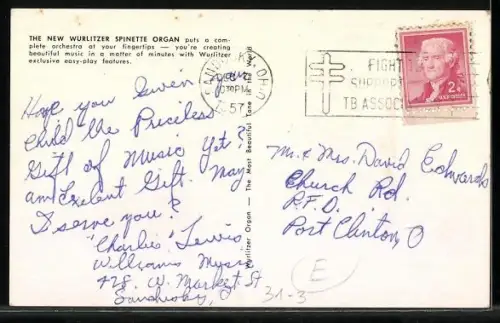 THE NEW WURLITZER SPINETTE ORGAN puts a com-
plete orchestra at your fingertips — you're creating
beautiful music in a matter of minutes with Wurlitzer
exclusive easy-play features.
Hope you Given your
Child the Priceless
Gift of Music yet?
an Exelent Gift. May
I serve you?
"Charlie" Lewis
Williams Music
428 W. Market St
Sandusky, O
Wurlitzer Organ — The Most Beautiful Tone in the World
SANDUSKY, OHIO
PM
57
FIGHT TB
SUPPORT
TB ASSOC
2¢
Mr. & Mrs. David Edwards
Church Rd.
R.F.D.
Port Clinton, O
E
31-3